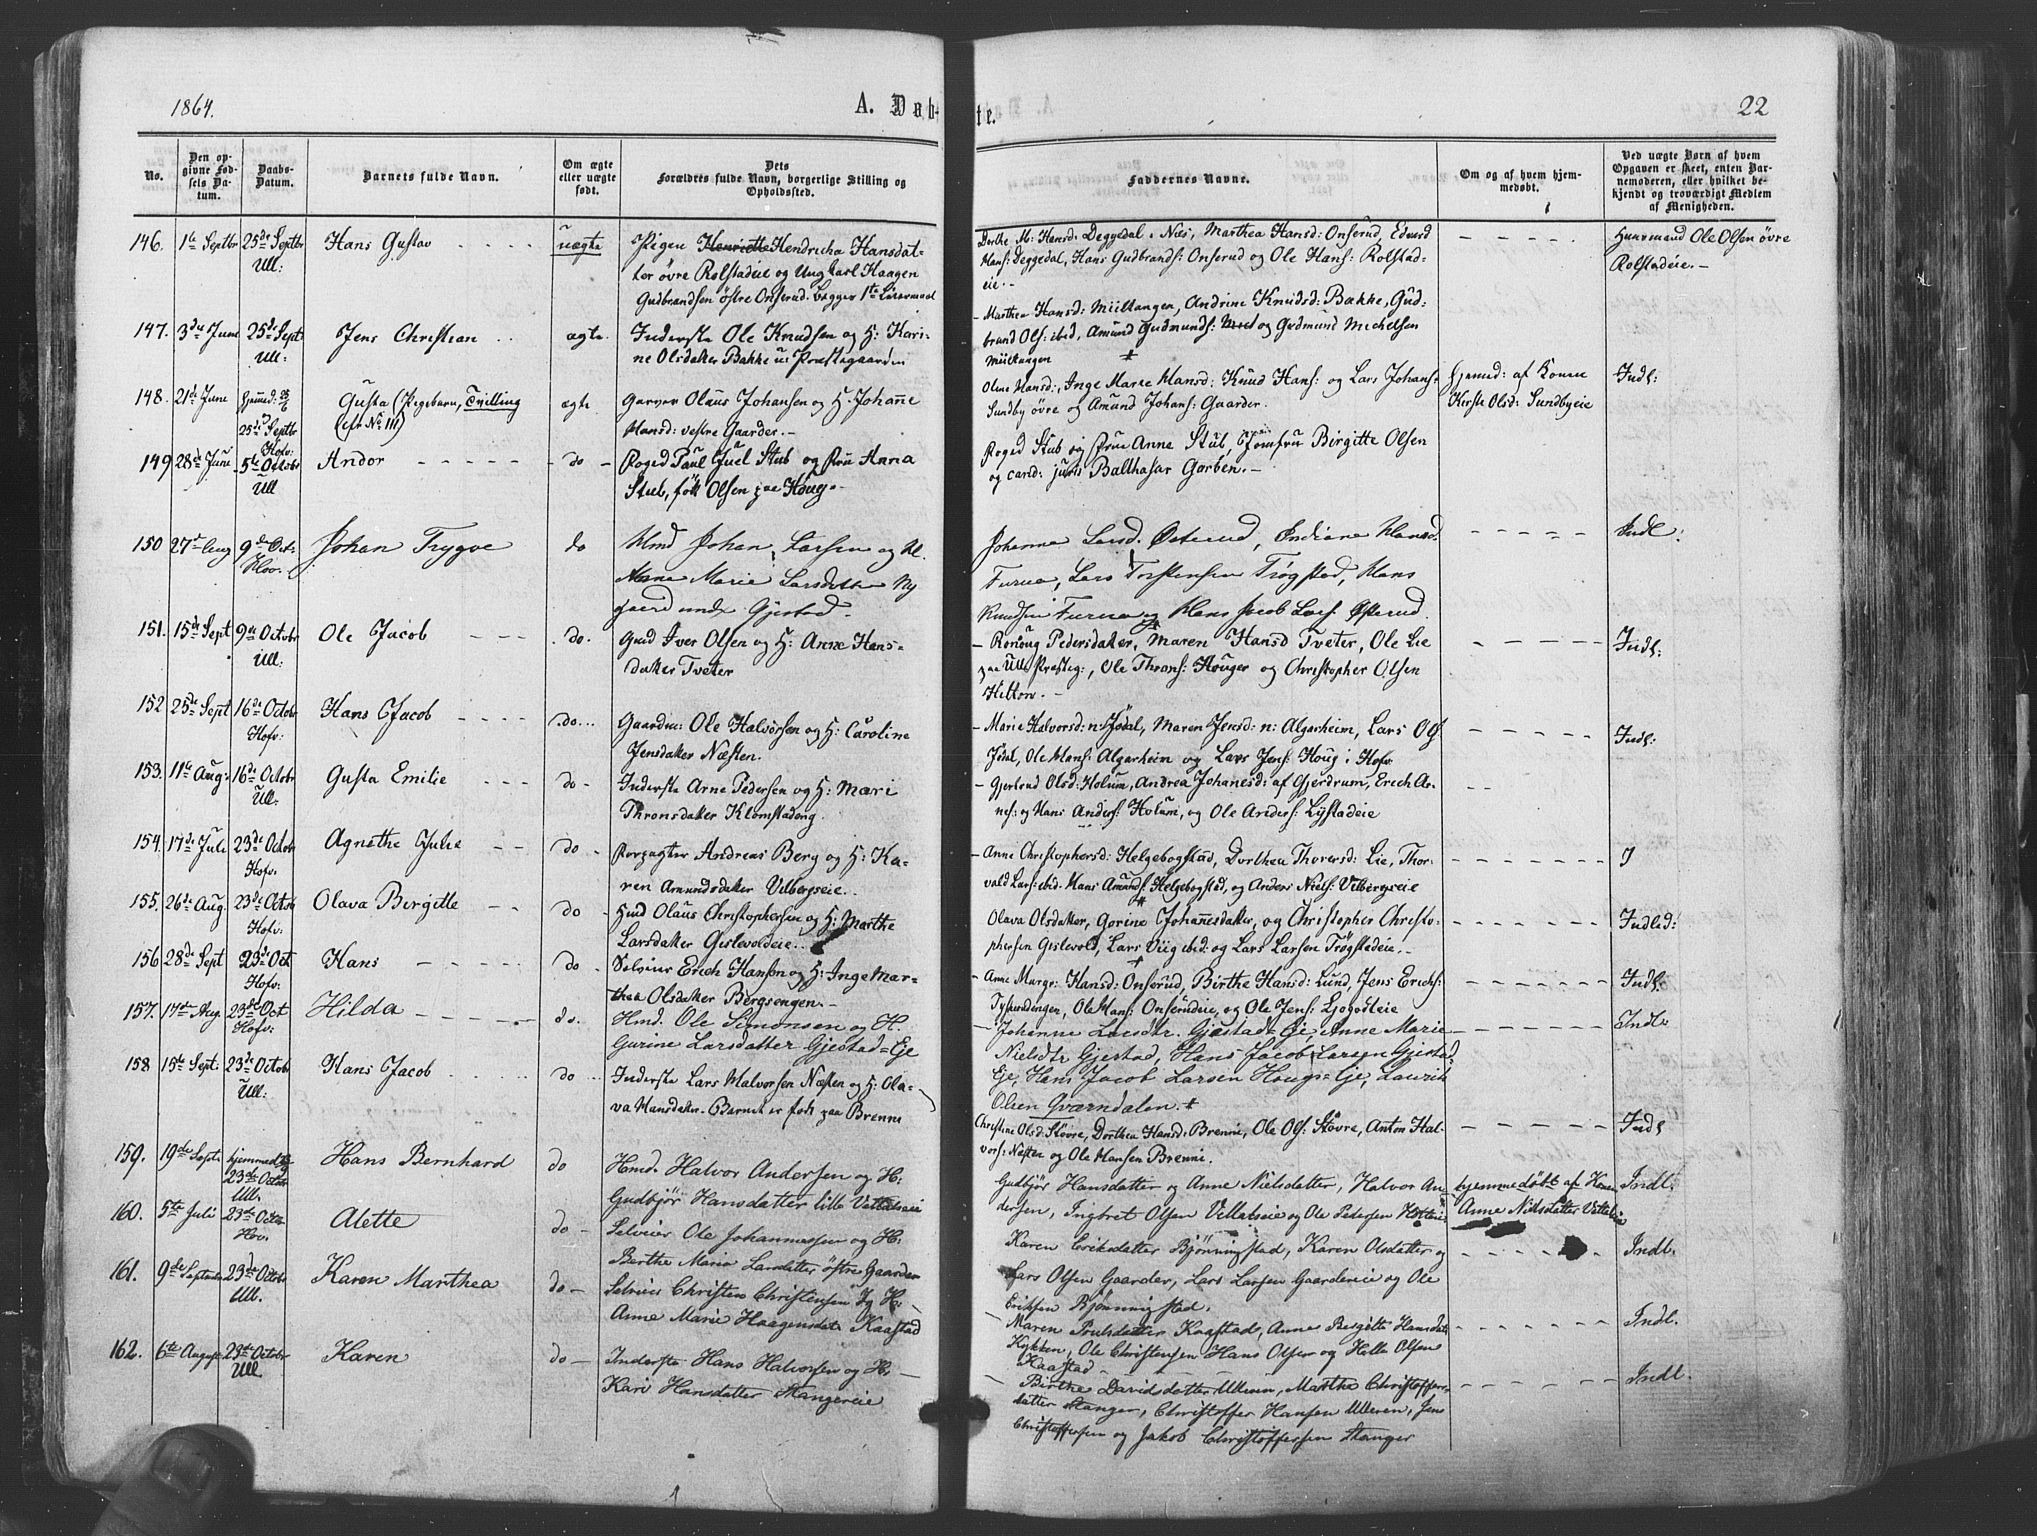 1864.
A. Døb-
te.
22
No.
Den op-
givne Fød-
sels Da-
tum.
Daabs-
Datum.
Barnets fulde Navn.
Om ægte
eller uægte
født.
Dets
Forældres fulde Navn, borgerlige Stilling og
Opholdssted.
Faddernes Navne.
Om og af hvem hjem-
medøbt.
Ved uægte Børn af hvem
Opgaven er skeet, enten Bar-
nemoderen, eller hvilket be-
kjendt og troværdigt Medlem
af Menigheden.
146. 1te Septbr 25de Septbr Hans Gustav uægte Pigen Henriette Hendricha Hansdat-
Ull: ter øvre Rolstadeie og Ungkarl Haagen
Gudbrandsen østre Onserud. Begges 1te Leiermaal
Dorthe M: Hansd: Deggedal i Næs, Marthea Hansd: Onserud, Edvard
Hans: Deggedal, Hans Gudbrands: Onserud og Ole Hans: Rolstad-
eie.-
Huusmand Ole Olsen øvre
Rolstadeie.-
147. 3die June 25de Septb Jens Christian ægte. Inderste Ole Knudsen og H: Kari-
Ull: ne Olsdatter Bakke u: Præstegaarden
- Marthea Hansd: Miiltangen, Andrine Knudsd: Bakke, Gud-
brand Ols: ibid, Amund Gudmunds: og Gudmund Michelsen
Miiltangen
148. 21de June Hjemmed: Gusta (Pigebarn, Tvilling ægte Garver Olaus Johansen og H. Johanne
25de Septbr (cfr No 111) Hansd: vestre Gaarder.-
Hofv:
Oline Hansd:, Inge Marie Hansd: Knud Hans: og Lars Johans:
Sundby øvre og Amund Johans: Gaarder.
Hjemed: af Konen
Kirsti Olsd: Sundbyeie
Indl:
149 28de June 5te Octobr Andor do Foged Paul Juel Stub og Fru Anna
Ull Stub, født Olsen paa Houg.-
Foged Stub og Frue Anne Stub, Jomfru Birgitte Olsen
og cand: juris Balthasar Garben.-
150 27de Aug 9de Oct: Johan Trygve do Hmd Johan Larsen og H.
Hov: Anne Marie Larsdatter Ny
gaard unde Gjestad.
Johanna Larsd. Østerud, Indiane Hansd.
Furua, Lars Torstensen Trøgstad, Hans
Knudsen Furua og Hans Jacob Lars: Østerud.
Indl:
151. 15de Sept 9de Octobr Ole Jacob do. Gmd Iver Olsen og H: Anne Hans-
Ull: datter Tveter
- Rønnoug Pedersdatter, Maren Hansd Tveter, Ole Lie
paa Ull: Præsteg:, Ole Throns: Houger og Christopher Olsen
Hilton.-
Indl:
152 25de Sept 16de Octobr Hans Jacob do Gaardm: Ole Halvorsen og H: Caroline
Hofv: Jensdatter Næsten.
- Marie Halvorsd: n: Jødal, Maren Jensd: n: Algarheim, Lars Ols:
Jødal, Ole Hans: Algarheim og Lars Jens: Houg i Hofv:
Indl:
153. 11te Aug: 16de Octobr Gusta Emilie do Inderste Arne Pedersen og H: Mari
Ull: Thronsdatter Klomstadeng.
- Gjertrud Olsd: Holum, Andrea Johanesd: af Gjerdrum, Erich Ar-
nes: og Hans Anders: Holum, og Ole Anders: Lystadeie
154. 17de Juli 23de Octobr Agnethe Julie do Forpagter Andreas Berg og H: Ka-
Hofv: ren Amundsdatter Vilbergseie.
- Anne Christophersd: Helgebogstad, Dorthea Thoresd: Lie, Thor-
vald Lars: ibid. Hans Amunds: Helgebogstad, og Anders Niels: Vilbergseie
155. 26de Aug. 23de Octbr Olava Birgitte do Hmd Olaus Christophersen og H: Marthe
Hofv: Larsdatter Gislevoldeie.
Olava Olsdatter, Gorine Johannesdatter, og Christopher Christo-
phersen Gislevold, Lars Viig ibid: og Lars Larsen Trøgstadeie.
Indled:
156 28de Sept 23de Oct Hans do Selveier Erich Hansen og H: Inge Mar-
Hofv: thea Olsdatter Bergsengen.-
- Anne Margr: Hansd: Onserud, Birthe Hansd: Lund, Jens Erichs:
Ole Hans: Onserudeie og Ole Jens: Ljøgodteie
Indl:
157. 17de Aug. 23de Oct Hilda do. Hmd. Ole Simonsen og H.
Hofv: Gurine Larsdatter Gjestad=Eje
- Johenne Larsdtr. Gjestad=Eje, Anne Marie
Nielsdtr Gjestad, Hans Jacob Larsen Gjestad-
Eje, Hans Jacob Larsen Hougs=Eje, Laurits
Olsen Qværndalen.
Indl.
158 15de Sept: 23de Octobr Hans Jacob do Inderste Lars Halvorsen Næsten og H: Ola-
Ull: va Hansdatter. Barnet er født paa Brenne
Christine Olsd: Støvre, Dorthea Hansd: Brenni, Ole Ols: Støvre, Anton Hal-
vors: Næsten og Ole Hansen Brenni.
Indl
159. 19de Sept. hjemmedøbt Hans Bernhard do Hmd. Halvor Andersen og H:
23de Octobr Gudbjør Hansdatter lille Vættalseie
Ull.
Gudbjør Hansdatter og Anne Nielsdatter, Halvor An-
dersen, Ingbret Olsen Vellatseie og Ole Pedersen
hjemmedøbt af Konen
Anne Nielsdatter
Indl.
160. 5te Juli 23de Octbr Alette do Selveier Ole Johannessen og H:
Hov. Berthe Maria Larsdatter østre Gaarder
Karen Eriksdatter Bjønningstad, Karen Olsdatter og
Lars Olsen Gaarder, Lars Larsen Gaardereie og Ole
Eriksen Bjønningstad.
Indl.
161. 9de September 23de Octobr Karen Marthea do Selveier Christen Christensen og H:
Ull. Anne Marie Haagensdat Kaastad
- Maren Poulsdatter Kaastad, Anne Bergitte Hansdatter
Kykken, Ole Christensen Hans Olsen og Helle Olsen
Kaastad
Indl.
162. 6te August 23de Octobr Karen do Inderste Hans Halvorsen og H:
Ull. Kari Hansdatter Stangereie
- Birthe Davidsdatter Ulleren, Marthe Christoffers-
datter Stanger, Christoffer Hansen Ulleren, Jens
Christoffersen og Jakob Christoffersen Stanger
Indl.